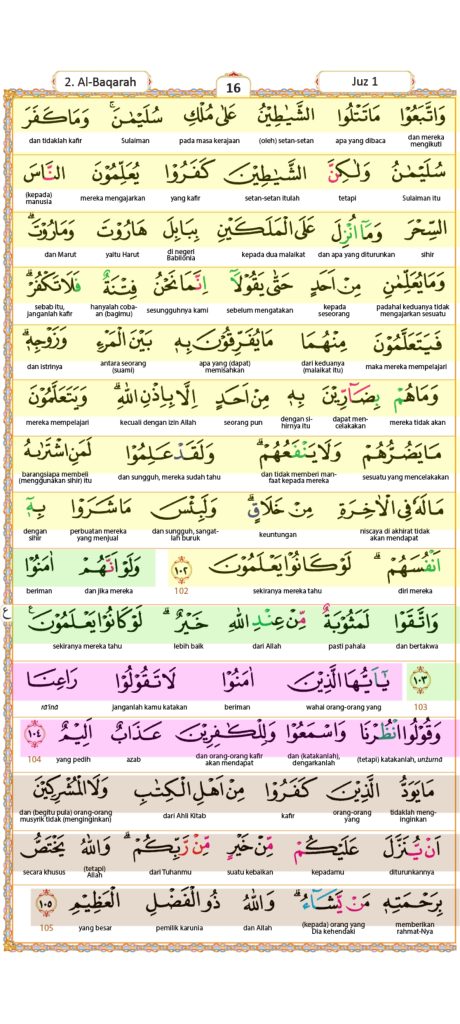 2. Al-Baqarah 16 Juz 1
وَاتَّبَعُوْا مَا تَتْلُوا الشَّيٰطِيْنُ عَلٰى مُلْكِ سُلَيْمٰنَ ۚ وَمَا كَفَرَ
dan mereka mengikuti apa yang dibaca (oleh) setan-setan pada masa kerajaan Sulaiman dan tidaklah kafir
سُلَيْمٰنُ وَلٰكِنَّ الشَّيٰطِيْنَ كَفَرُوْا يُعَلِّمُوْنَ النَّاسَ
Sulaiman itu tetapi setan-setan itulah yang kafir mereka mengajarkan (kepada) manusia
السِّحْرَ وَمَآ اُنْزِلَ عَلَى الْمَلَكَيْنِ بِبَابِلَ هَارُوْتَ وَمَارُوْتَ ۗ
sihir dan apa yang diturunkan kepada dua malaikat di negeri Babilonia yaitu Harut dan Marut
وَمَا يُعَلِّمٰنِ مِنْ اَحَدٍ حَتّٰى يَقُوْلَآ اِنَّمَا نَحْنُ فِتْنَةٌ فَلَا تَكْفُرْ ۗ
padahal keduanya tidak mengajarkan sesuatu kepada seseorang sebelum mengatakan sesungguhnya kami hanyalah coba-an (bagimu) sebab itu, janganlah kafir
فَيَتَعَلَّمُوْنَ مِنْهُمَا مَا يُفَرِّقُوْنَ بِهٖ بَيْنَ الْمَرْءِ وَزَوْجِهٖ ۗ
maka mereka mempelajari dari keduanya (malaikat itu) apa yang (dapat) memisahkan antara seorang (suami) dan istrinya
وَمَا هُمْ بِضَاۤرِّيْنَ بِهٖ مِنْ اَحَدٍ اِلَّا بِاِذْنِ اللّٰهِ ۗ وَيَتَعَلَّمُوْنَ
mereka tidak akan dapat men-celakakan dengan si-hirnya itu seorang pun kecuali dengan izin Allah mereka mempelajari
مَا يَضُرُّهُمْ وَلَا يَنْفَعُهُمْ ۗ وَلَقَدْ عَلِمُوْا لَمَنِ اشْتَرٰىهُ
sesuatu yang mencelakakan dan tidak memberi man-faat kepada mereka dan sungguh, mereka sudah tahu barangsiapa membeli (menggunakan sihir) itu
مَا لَهٗ فِى الْاٰخِرَةِ مِنْ خَلَاقٍ ۗ وَلَبِئْسَ مَا شَرَوْا بِهٖٓ
niscaya di akhirat tidak akan mendapat keuntungan dan sungguh, sangat-lah buruk perbuatan mereka yang menjual dengan sihir
اَنْفُسَهُمْ ۗ لَوْ كَانُوْا يَعْلَمُوْنَ ١٠٢ وَلَوْ اَنَّهُمْ اٰمَنُوْا
diri mereka sekiranya mereka tahu 102 dan jika mereka beriman
ع
وَاتَّقَوْا لَمَثُوْبَةٌ مِّنْ عِنْدِ اللّٰهِ خَيْرٌ ۗ لَوْ كَانُوْا يَعْلَمُوْنَ
dan bertakwa pasti pahala dari Allah lebih baik sekiranya mereka tahu
١٠٣ يٰٓاَيُّهَا الَّذِيْنَ اٰمَنُوْا لَا تَقُوْلُوْا رَاعِنَا
103 wahai orang-orang yang beriman janganlah kamu katakan rā'inā
وَقُوْلُوا انْظُرْنَا وَاسْمَعُوْا وَلِلْكٰفِرِيْنَ عَذَابٌ اَلِيْمٌ ١٠٤
(tetapi) katakanlah, unẓurnā dan (katakanlah), dengarkanlah dan orang-orang kafir akan mendapat azab yang pedih 104
مَا يَوَدُّ الَّذِيْنَ كَفَرُوْا مِنْ اَهْلِ الْكِتٰبِ وَلَا الْمُشْرِكِيْنَ
tidaklah meng-inginkan orang-orang yang kafir dari Ahli Kitab dan (begitu pula) orang-orang musyrik tidak (menginginkan)
اَنْ يُّنَزَّلَ عَلَيْكُمْ مِّنْ خَيْرٍ مِّنْ رَّبِّكُمْ ۗ وَاللّٰهُ يَخْتَصُّ
diturunkannya kepadamu suatu kebaikan dari Tuhanmu (tetapi) Allah secara khusus
بِرَحْمَتِهٖ مَنْ يَّشَاۤءُ ۗ وَاللّٰهُ ذُو الْفَضْلِ الْعَظِيْمِ ١٠٥
memberikan rahmat-Nya (kepada) orang yang Dia kehendaki dan Allah pemilik karunia yang besar 105